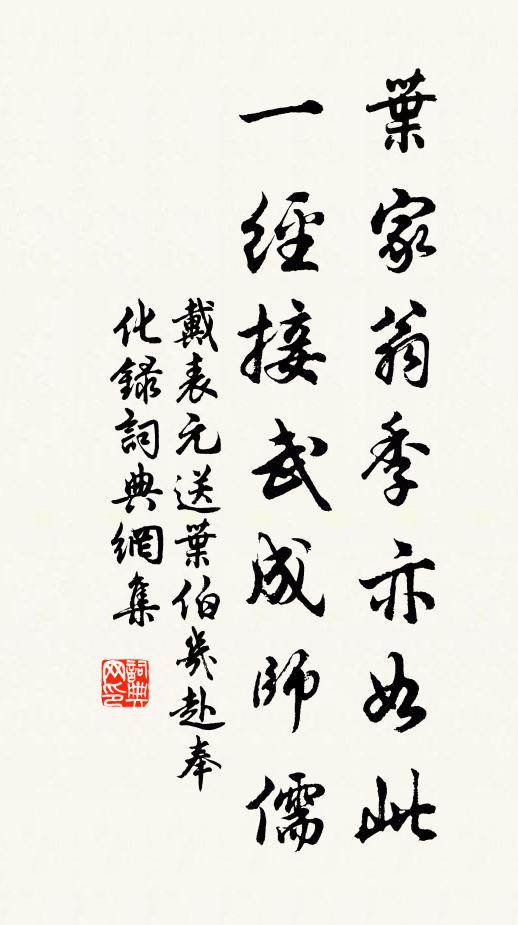 葉家翁季亦如此
一經接武成師儒
戴表元送葉伯幾赴奉
化録詞典網集
詞典網印